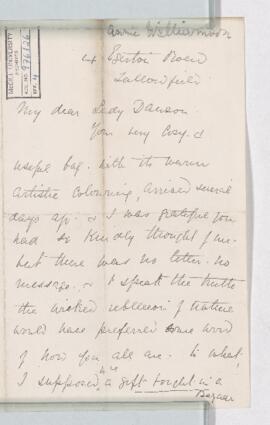 Annie Williamson
McGILL UNIVERSITY
ARCHIVES
ACC. NO. 976/26
REF. 4
Egerton Road
Fallowfield
My dear Lady Dawson
Your very Cosy &
useful bag. with its warm
Artistic Colouring, arrived several
days ago. & I was grateful you
had so Kindly thought of me.
but there was no letter. no
message. & to speak the truth
the wicked rebellion of Nature
would have preferred some word
of how you all are. to what
I supposed was a gift bought in a
Bazaar